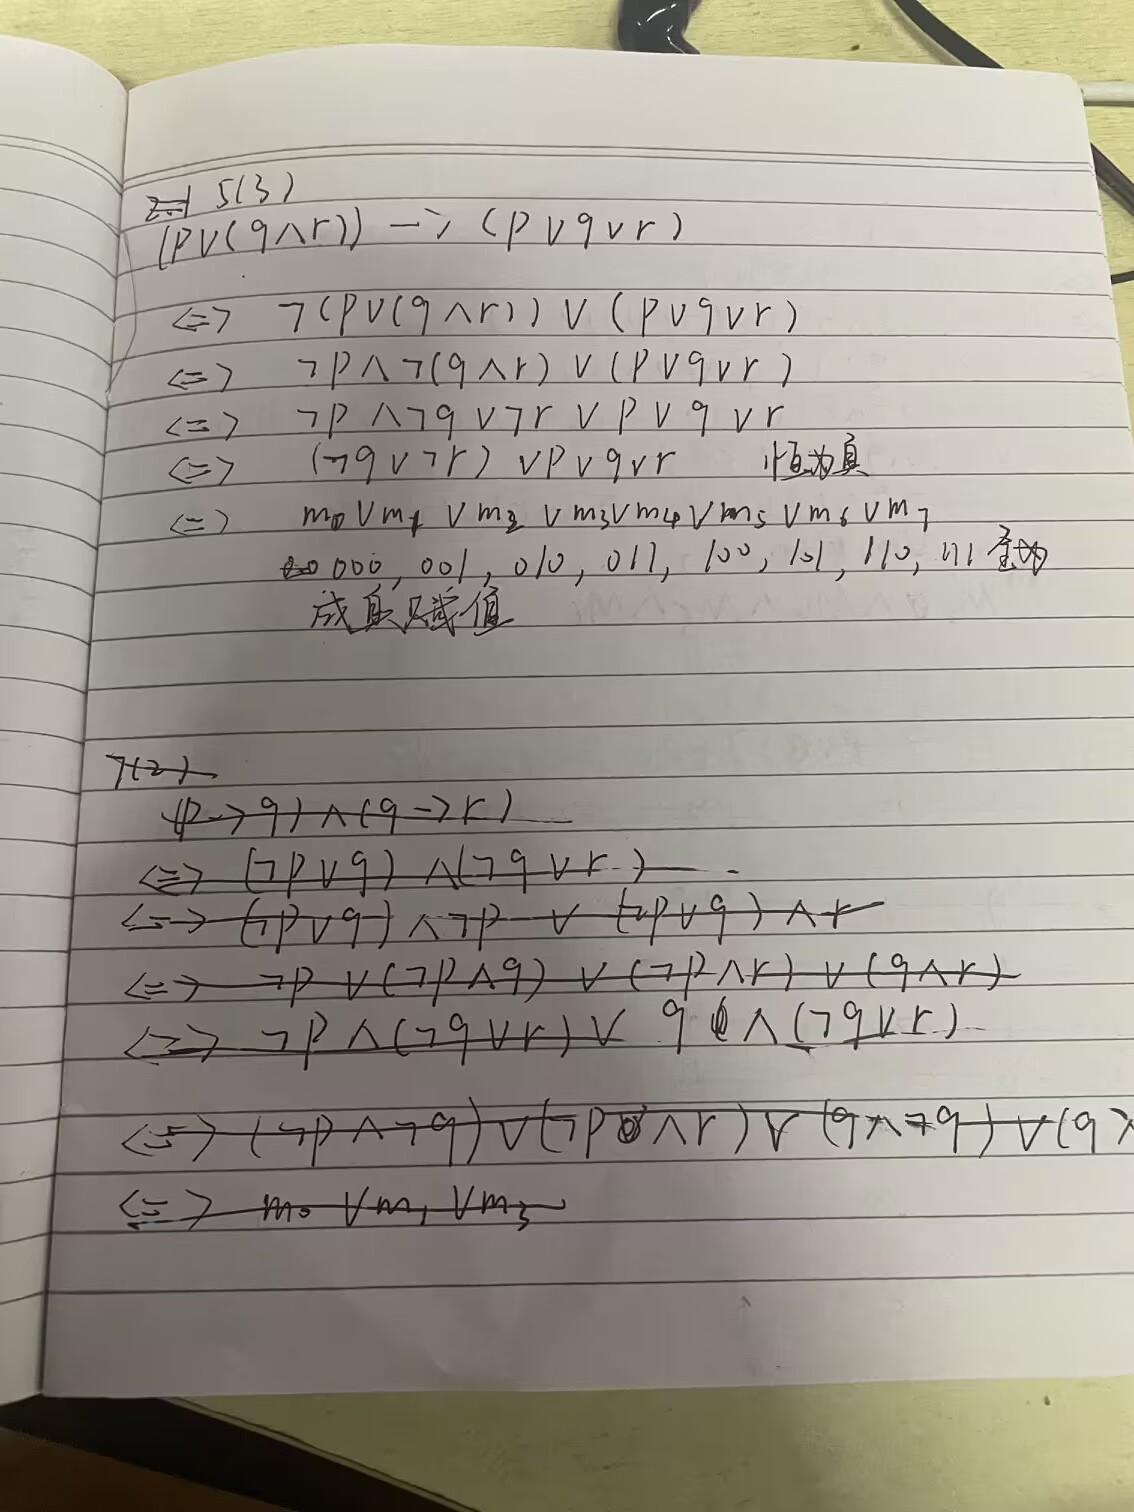 5(3)
(p∨(q∧r)) → (p∨q∨r)
<=> ¬(p∨(q∧r)) ∨ (p∨q∨r)
<=> ¬p∧¬(q∧r) ∨ (p∨q∨r)
<=> ¬p∧¬q∨¬r∨p∨q∨r
<=> (¬q∨¬r) ∨p∨q∨r 恒为真
<=> m₀∨m₁∨m₂∨m₃∨m₄∨m₅∨m₆∨m₇
000, 001, 010, 011, 100, 101, 110, 111 全为
成真赋值
7(2)
(p→q)∧(q→r)
<=> (¬p∨q)∧(¬q∨r)
<=> (¬p∨q)∧¬p ∨ (¬p∨q)∧r
<=> ¬p∨(¬p∧q)∨(¬p∧r)∨(q∧r)
<=> ¬p∧(¬q∨r)∨ q∧(¬q∨r)
<=> (¬p∧¬q)∨(¬p∧r)∨(q∧¬q)∨(q∧
<=> m₀∨m₁∨m₃